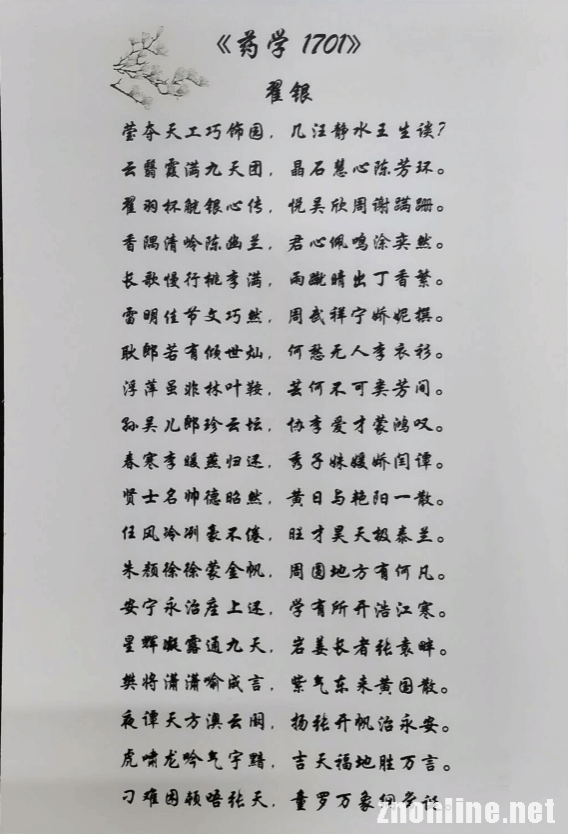 《药学 1701》
翟银
莹夺天工巧饰园，几汪静水王生谈？
云翳霞满九天团，晶石慧心陈芳环。
翟羽杯觥银心传，悦吴欣周谢蹒跚。
香隅清岭陈幽兰，君心佩鸣涂奕然。
长歌慢行桃李满，雨蹴晴出丁香繁。
雷明佳节文巧然，周武祥宁娇妮撰。
耿郎若有倾世灿，何愁无人李衣衫。
浮萍虽非林叶鞍，芸何不可类芳间。
孙吴儿郎珍云坛，协李爱才蒙鸿叹。
春寒李暖燕归还，秀子姝媛娇闫谭。
贤士名帅德昭然，黄日与艳阳一散。
任风泠冽豪不倦，旺才昊天极泰兰。
朱颜徐徐蒙金帆，周圆地方有何凡。
安宁永治座上还，学有所开浩江寒。
星辉凝露通九天，岩姜长者张袁畔。
樊将潇潇喻成言，紫气东来黄国散。
夜谭天方澳云阁，扬张开帆治永安。
虎啸龙吟气宇黯，吉天福地胜万言。
刁难困顿唔张天，童罗万象
znonline.net